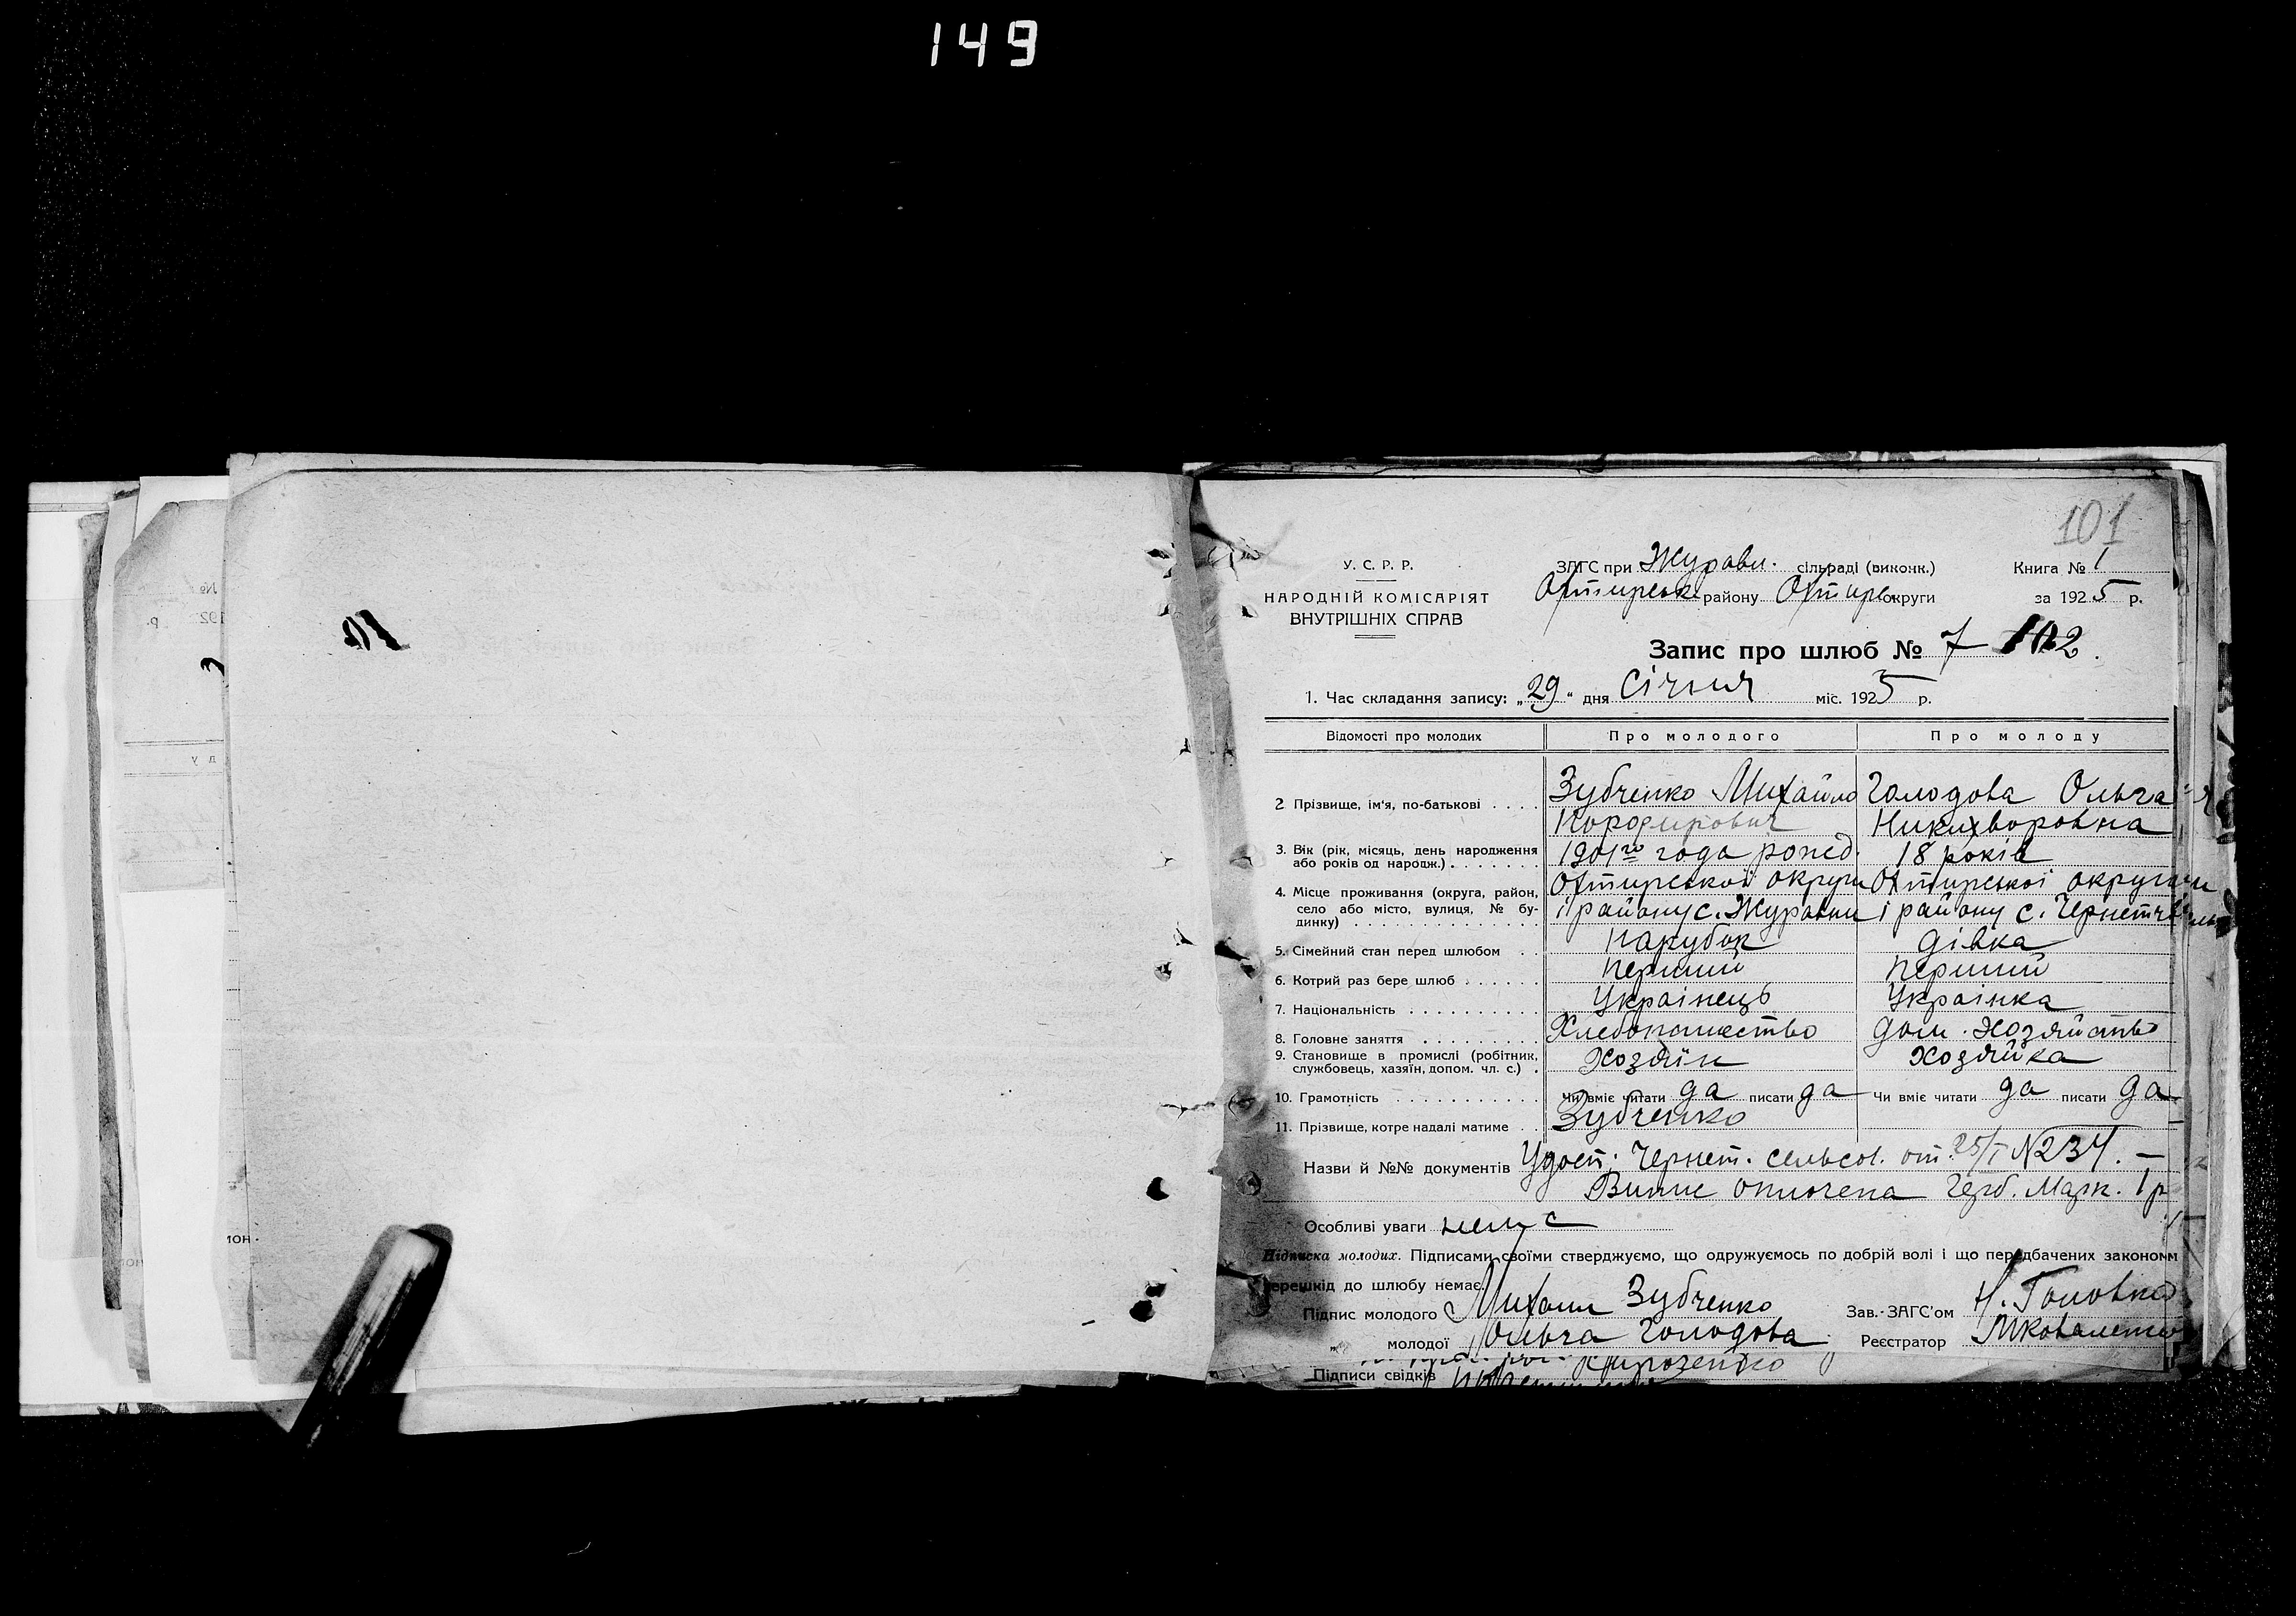 149
101
У. С. Р. Р.
НАРОДНІЙ КОМІСАРІЯТ
ВНУТРІШНІХ СПРАВ
ЗАГС при Журавл. сільраді (виконк.)
Охтирськ. району Охтирс. округи
Книга № 1
за 1925 р.
Запис про шлюб № 7 102.
1. Час складання запису: „29“ дня Січня міс. 1925 р.
Відомості про молодих
Про молодого
Про молоду
2 Прізвище, ім'я, по-батькові . . . .
Зубченко Михайло
Голодова Ольга
Никихворовна
3. Вік (рік, місяць, день народження
або років од народж.) . . . . . . .
1901го года рожд.
18 років
4. Місце проживання (округа, район,
село або місто, вулиця, № бу-
динку) . . . . . . . . . . . . . .
Охтирськоі округи
і району с. Журавни
Охтирськоі округи
і району с. Чернетч
5. Сімейний стан перед шлюбом . .
парубок
дівка
6. Котрий раз бере шлюб . . . . . .
перший
перший
7. Національність . . . . . . . . . .
Українець
Українка
8. Головне заняття . . . . . . . . .
Хлебопашество
дом. Хозяйство
9. Становище в промислі (робітник,
службовець, хазяїн, допом. чл. с.) .
Хозяїн
хозяйка
10. Грамотність . . . . . . . . . . .
Чи вміє читати да писати да
Чи вміє читати да писати да
11. Прізвище, котре надалі матиме . .
Зубченко
Назви й №№ документів Удост. Чернет. сельсов. от 25/I №234. —
Випис оплочена герб. Марк. 1 р
Особливі уваги нема
Підписка молодих. Підписами своїми стверджуємо, що одружуємось по добрій волі і що передбачених законом
перешкід до шлюбу немає.
Підпис молодого Михаил Зубченко
„ молодої Ольга Голодова
Зав. ЗАГС'ом Н. Головко
Реєстратор
Підписи свідків